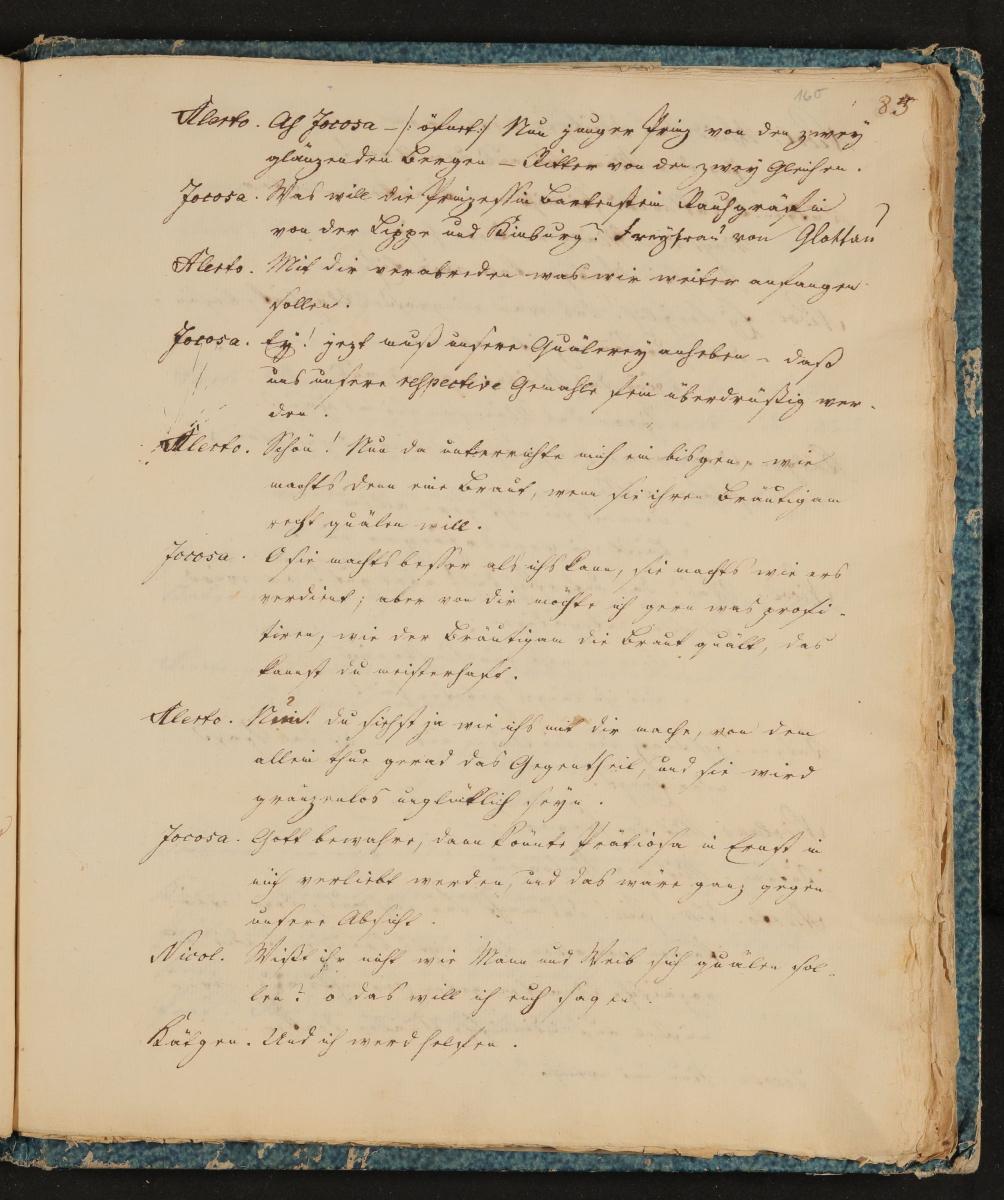 160 85
Alerto. Ah Jocosa — /: öfnet :/ Nun junger Prinz von den zwey
glänzenden Bergen — Ritter von den zwey Gleichen.
Jocosa. Was will die Prinzessin Bartenstein Rauhgräfin
von der Lippe und Kinburg? Freyfrau von Glottau?
Alerto. Mit dir verabreden was wir weiter anfangen
sollen.
Jocosa. Ey! jezt muß unsere Quälerey anheben – daß
uns unsere respective Gemahle fein überdrüßig wer-
den.
Alerto. Schön! Nun da unterrichte mich ein bisgen, wie
machts denn eine Braut, wenn sie ihren Bräutigam
recht quälen will.
Jocosa. O sie machts besser als ichs kann, sie machts wie ers
verdient; aber von dir möchte ich gern was profi-
tiren, wie der Bräutigam die Braut quält, das
kannst du meisterhaft.
Alerto. Nun du siehst ja wie ichs mit dir mache, von dem
allein thue gerad das Gegentheil, und sie wird
gränzenlos unglücklich seyn.
Jocosa. Gott bewahre, dann könnte Prätiosa in Ernst in
mich verliebt werden, und das wäre ganz gegen
unsere Absicht.
Nicol. Wißt ihr nicht wie Mann und Weib sich quälen sol-
len? o das will ich euch sagen.
Kätgen. Und ich werd helfen.